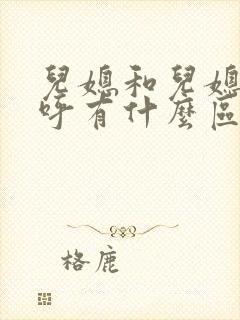 兒媳和兒媳
呼有什麼區
格鹿